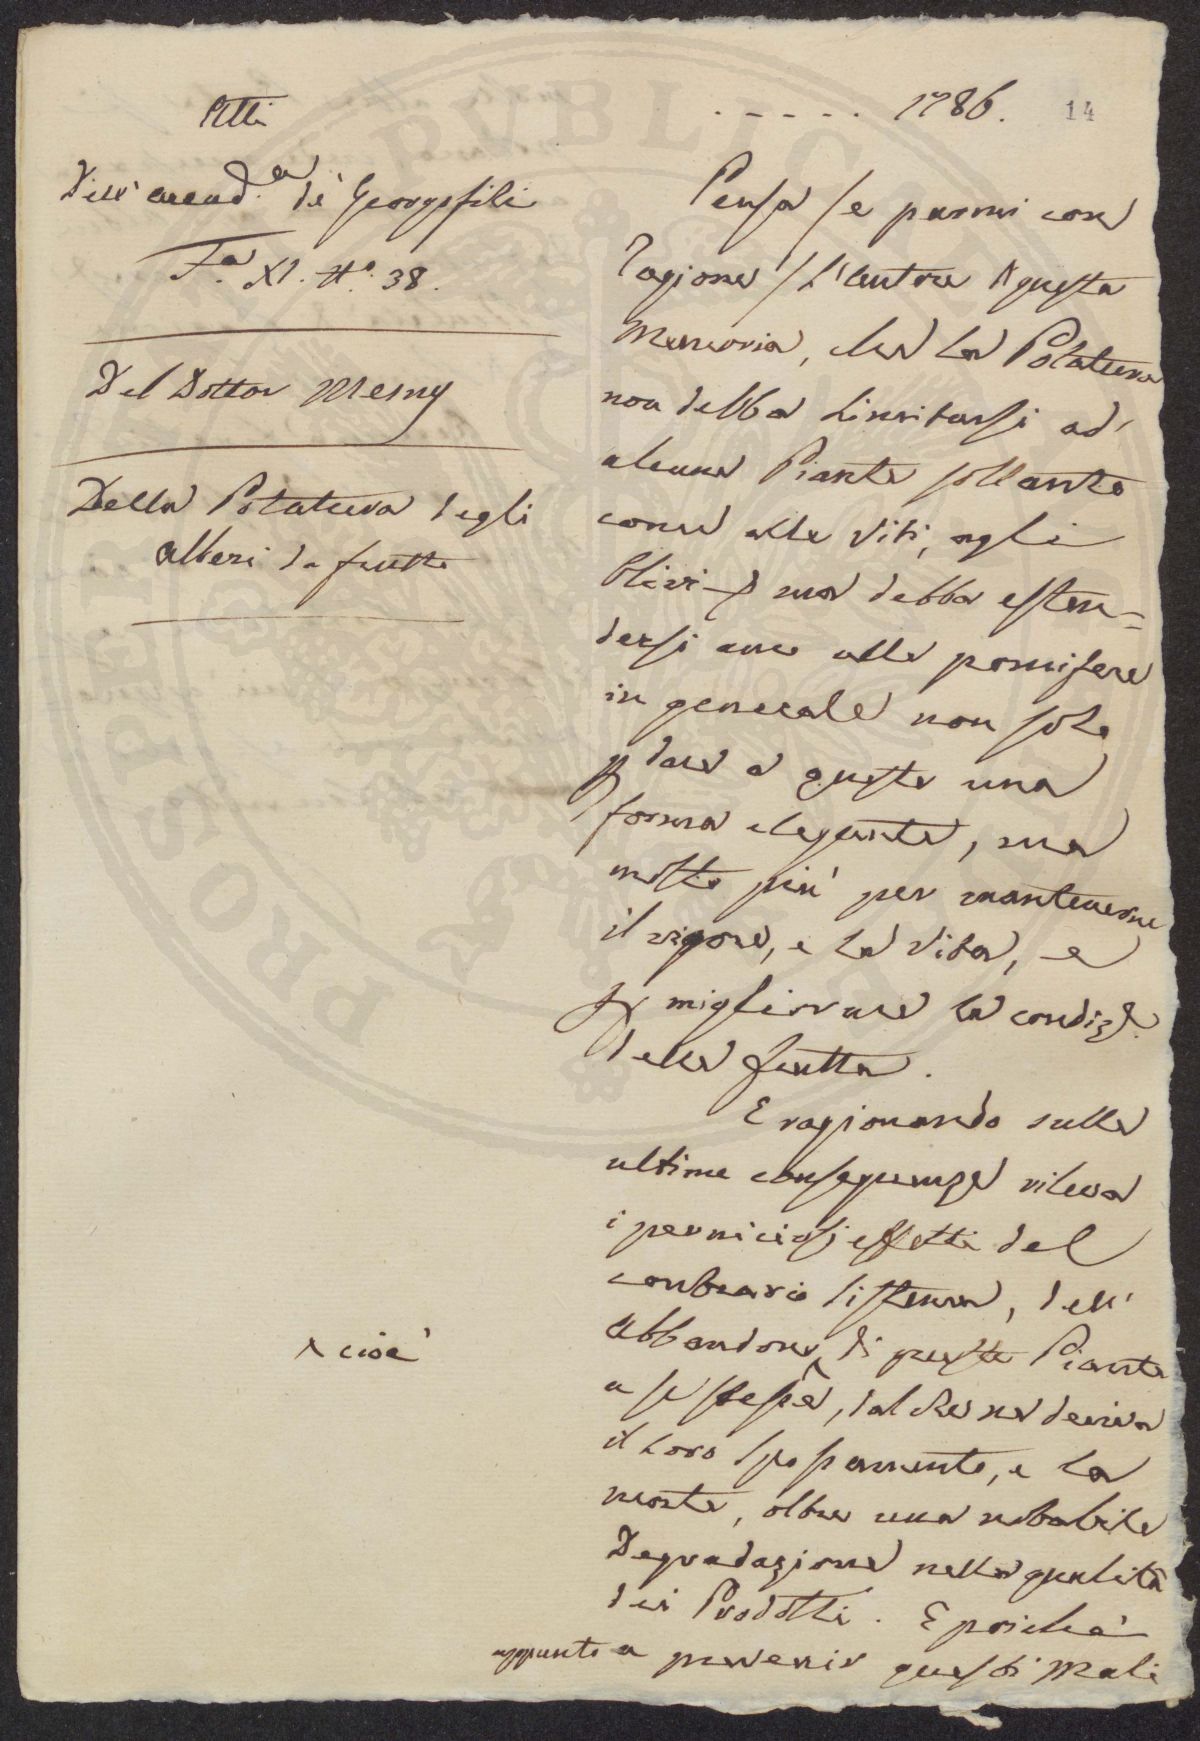 Atti
Dell' accad.a de' Georgofili
F.a XI. N.o 38.
Del Dottor Mesny
Della Potatura degli
alberi da frutto
. - - - - . 1786.
14
Pensa (e parmi con
ragione) l'autore di questa
Memoria, che la Potatura
non debba limitarsi ad
alcune Piante soltanto
come alle viti, agli
Olivi ma debba esten=
dersi anco alle pomifere
in generale non solo
p dare a queste una
forma elegante, ma
molto più per mantenerne
il vigore, e la vita, e
p migliorare la condiz.e
delle frutta.
E ragionando sulle
ultime conseguenze rileva
i perniciosi effetti del
contrario sistema, dell'
abbandono ^ di queste Piante
^ cioè
a se stesse, dal che ne deriva
il loro spossamento, e la
morte, oltre una notabile
Degradazione nella qualità
dei Prodotti. E poiche
appunto a prevenir questi mali